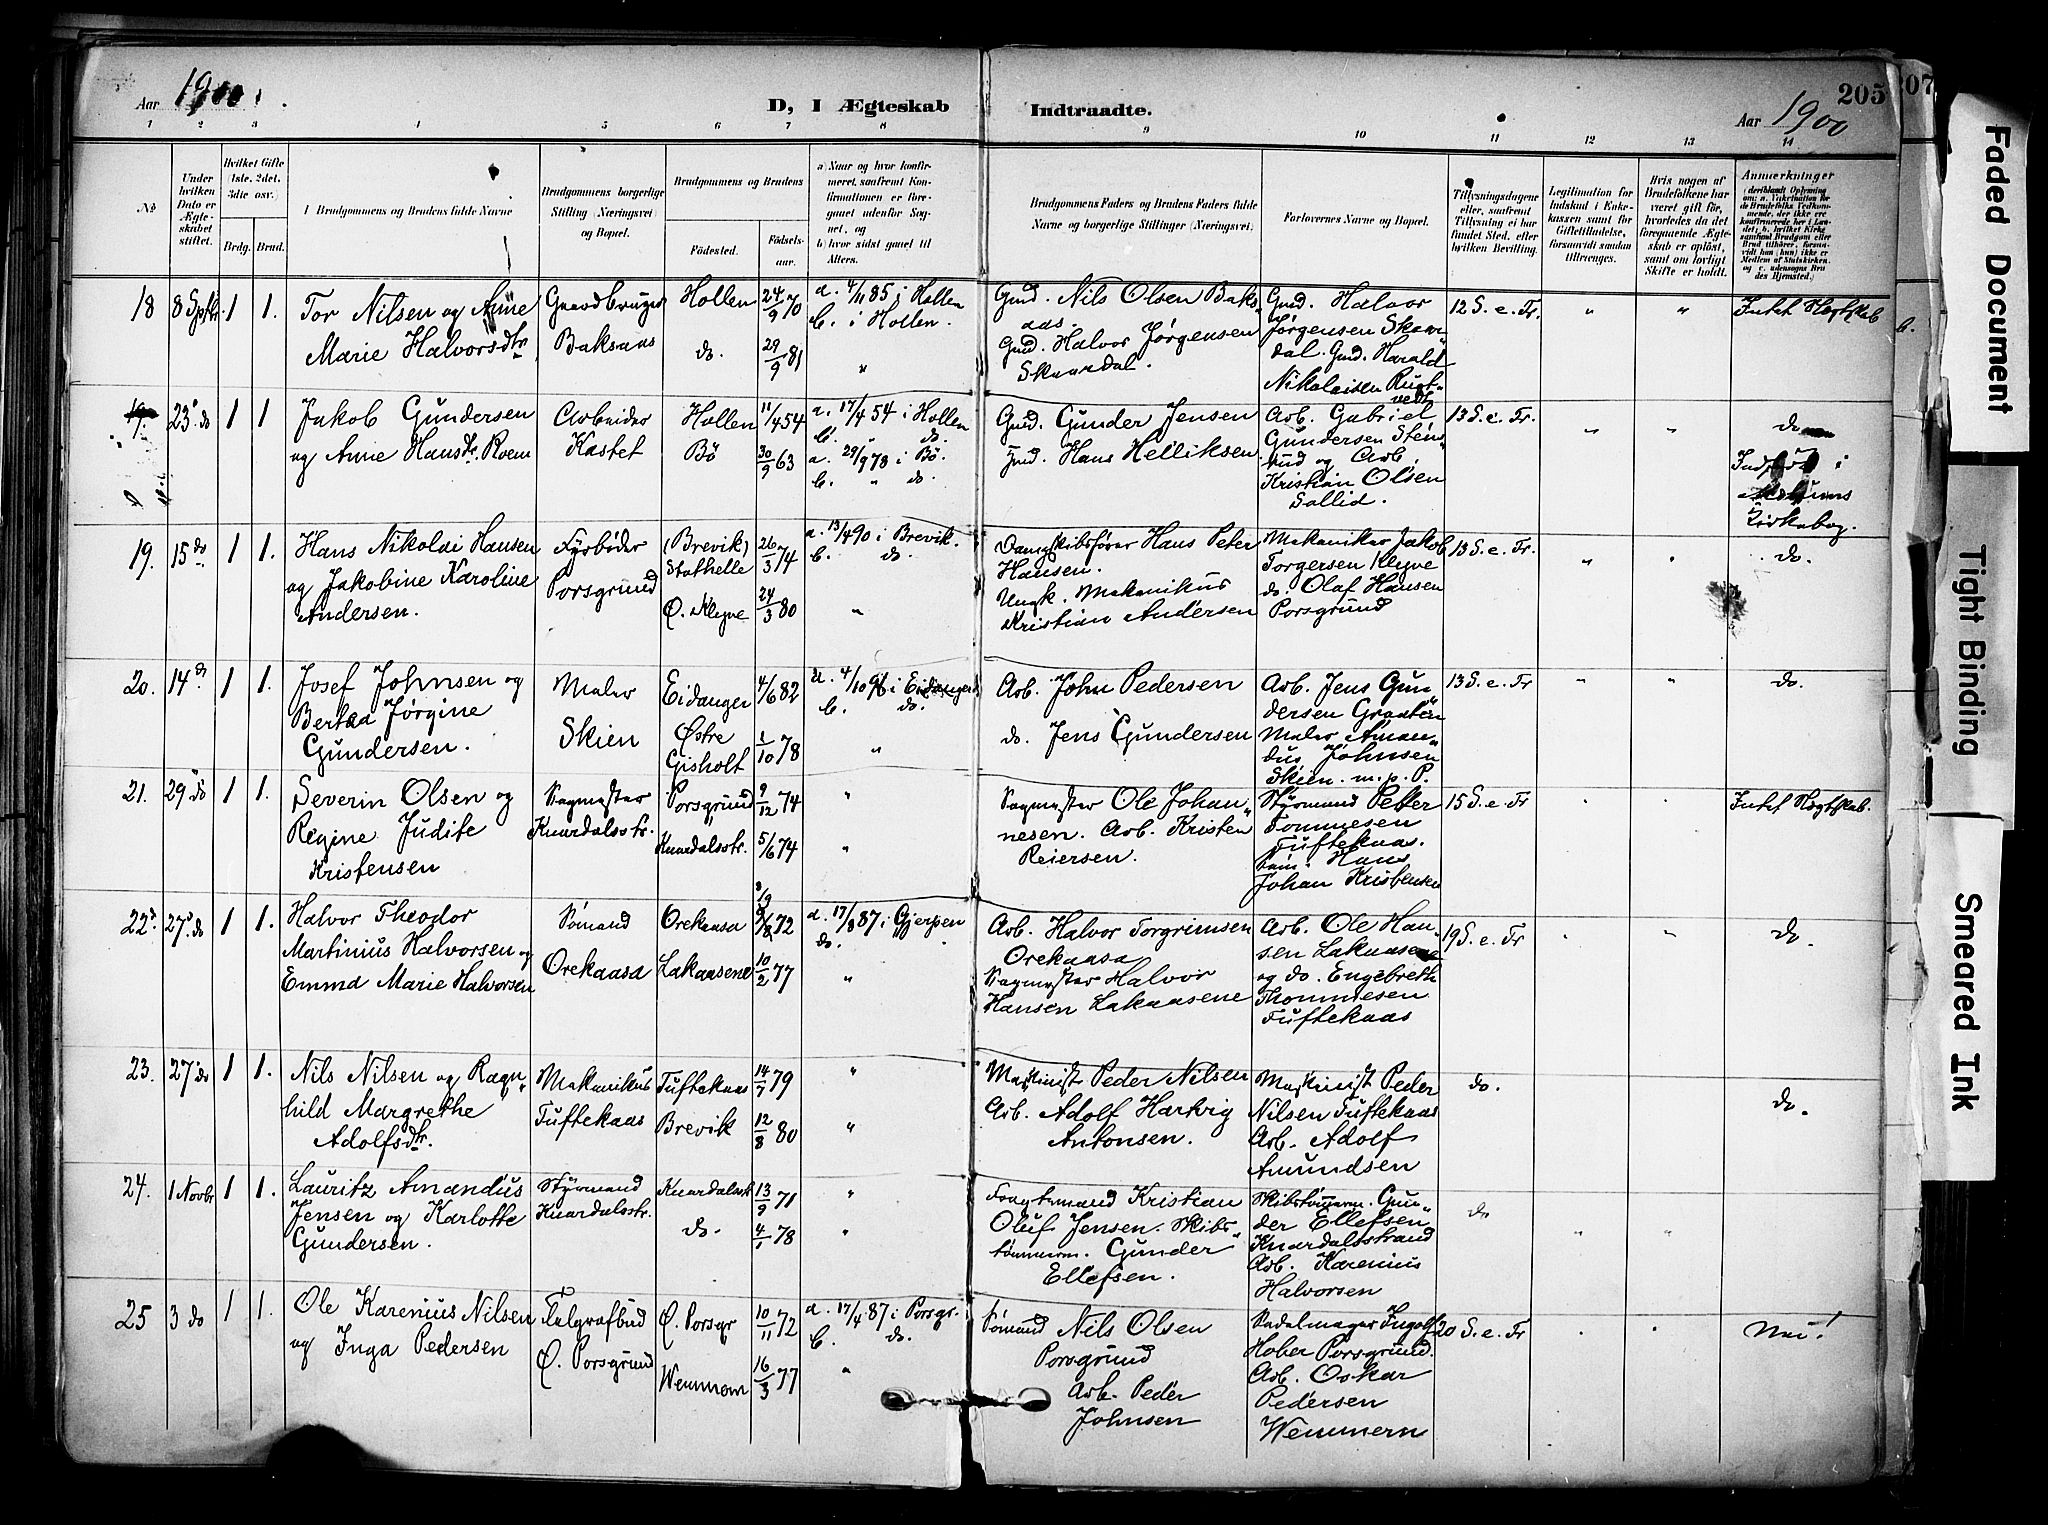 Aar 1900.
D, I Ægteskab
Indtraadte.
205
07
Aar 1900
1 2 3 4 5 6 7 8 9 10 11 12 13 14
No
Under hvilken Dato er Ægteskabet stiftet.
Hvilket Gifte (1ste. 2det. 3die osv.)
Brdg. Brud.
Brudgommens og Brudens fulde Navne
Brudgommens borgerlige Stilling (Næringsvei) og Bopæl.
Brudgommens og Brudens
Fødested.
Fødselsaar.
a) Naar og hvor konfirmeret, saafremt Konfirmationen er foregaaet udenfor Sognet, og
b) hvor sidst gaaet til Alters.
Brudgommens Faders og Brudens Faders fulde Navne og borgerlige Stillinger (Næringsvei.)
Forlovernes Navne og Bopæl.
Tillysningsdagene eller, saafremt Tillysning ei har fundet Sted, efter hvilken Bevilling.
Legitimation for Indskud i Enkekassen samt for Giftetilladelse, forsaavidt saadan tiltrænges.
Hvis nogen af Brudefolkene har været gift før, hvorledes da det foregaaende Ægteskab er opløst, samt om lovligt Skifte er holdt.
Anmærkninger
18 8 Sptbr. 1 1.
Tor Nilsen og Anne
Marie Halvorsdtr.
Gaardbruger
Baksaas
Hollen
do.
24/9 70
29/9 81
a. 4/11 85 i Hollen
b. i Hollen.
"
Gmd. Nils Olsen Baks
aas.
Gmd. Halvor Jørgensen
Skaardal.
Gmd. Halvor
Jørgensen Skaar
dal. Gmd. Harald
Nikolaisen Rugt
vedt
12 S. e. Fr.
" "
Intet Slegtskab
19. 23 do 1 1
Jakob Gundersen
og Anne Hansdtr. Roem
Arbeider
Kastet
Hollen
Bø
11/4 54
30/9 63
a. 17/4 54 i Hollen
b. " do.
a. 29/9 78 i Bø.
b. " do
Gmd. Gunder Jensen
Gmd. Hans Helliksen
Arb. Gabriel
Gundersen Stens
rud og Arb.
Kristian Olsen
Sollid.
13 S. e. Fr.
" "
do
Kirkebog.
19. 15 do 1 1.
Hans Nikolai Hansen
og Jakobine Karoline
Andersen.
Fyrbøder
Porsgrund
(Brevik)
Stathelle
Ø. Klyve
26/3 74
24/3 80
a. 13/4 90 i Brevik.
b. do.
"
Dampskibsfører Hans Peter
Hansen.
Ungk. Mekanikus
Kristian Andersen
Mekaniker Jakob
Torgersen Klyve
do. Olaf Hansen
Porsgrund
13 S. e. Fr.
" "
do.
20. 14 do 1 1.
Josef Johnsen og
Berta Jørgine
Gundersen.
Maler
Skien
Eidanger
Østre
Gisholt
4/6 82
1/10 78
a. 4/10 96 i Eidanger
b. do.
"
Arb. John Pedersen
do. Jens Gundersen
Arb. Jens Gun
dersen Graaten
Maler Aman
dus Johnsen
Skien. m. p. P.
13 S. e. Fr
" "
do.
21. 29 do 1 1.
Severin Olsen og
Regine Judite
Kristensen
Sagmester
Knardalsstr.
Porsgrund
Knardalsstr.
9/12 74
5/6 74
"
"
Sagmester Ole Johan
nesen. Arb. Kristen
Reiersen.
Styrmand Petter
Tommesen
Tuftekaas.
Tøm. Hans
Johan Kristensen
15 S. e. Fr
Intet Slegtskab.
22. 27 do 1 1.
Halvor Theodor
Martinius Halvorsen og
Emma Marie Halvorsen
Sømand
Orekaasa
Orekaasa
Lakaasene
72
10/2 77
a. 17/8 87 i Gjerpen
do.
"
Arb. Halvor Torgrimsen
Orekaasa
Sagmester Halvor
Hansen Lakaasene
Arb. Ole Han
sen Lakaasene
og do. Engebreth
Thommesen
Tuftekaas
19 S. e. Fr
do.
23. 27 do 1 1.
Nils Nilsen og Ragn
hild Margrethe
Adolfsdtr.
Mekanikus
Tuftekaas
Tuftekaas
Brevik
14/7 79
12/8 80
"
"
Maskinist Peder Nilsen
Arb. Adolf Hartvig
Antonsen.
Maskinist Peder
Nilsen Tuftekaas
Arb. Adolf
Amundsen
do.
do.
24. 1 Novbr 1 1.
Lauritz Amandus
Jensen og Karlotte
Gundersen.
Styrmand
Knardalsstr.
Knardalsstr
do.
13/9 71
4/1 78
"
"
Fragtemand Kristian
Oluf Jensen. Skibs
tømmerm. Gunder
Ellefsen.
Skibstømmerm. Gun
der Ellefsen
Knardalsstrand
Arb. Karenius
Halvorsen
do
25 3 do 1 1.
Ole Karenius Nilsen
og Inga Pedersen
Telegrafbud
Ø. Porsgrund
Ø. Porsgr
Wemmom
10/11 72
16/3 77
a. 17/4 87 i Porsgr.
b. do.
"
Sømand Nils Olsen
Porsgrund
Arb. Peder
Johnsen
Sadelmager Ingolf
Hober Porsgrund.
Arb. Oskar
Pedersen
Wemmern
20 S. e. Fr
Nei!
Faded Document
Tight Binding
Smeared Ink